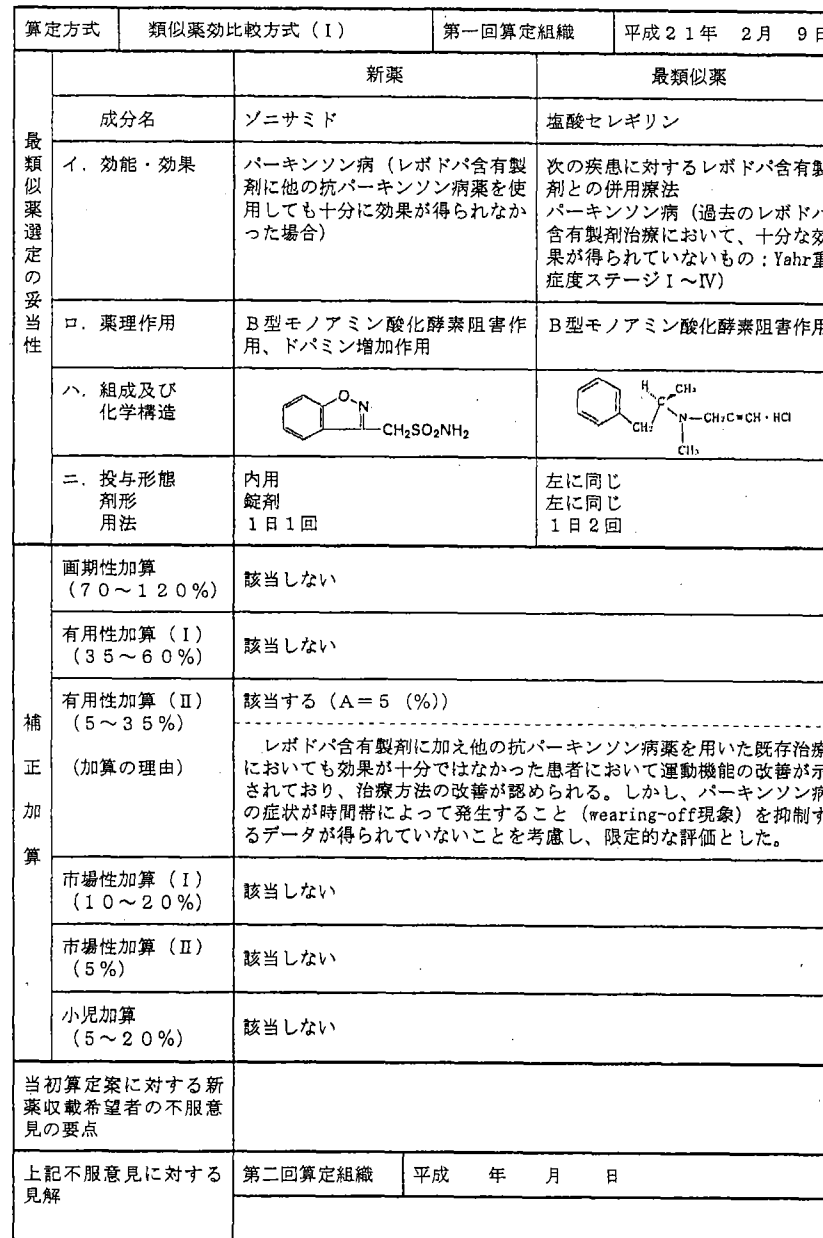 算定方式 類似薬効比較方式(Ⅰ) 第一回算定組織 平成21年 2月 9日
最類似薬選定の妥当性
新薬 最類似薬
成分名 ゾニサミド 塩酸セレギリン
イ.効能・効果
パーキンソン病(レボドパ含有製
剤に他の抗パーキンソン病薬を使
用しても十分に効果が得られなか
った場合)
次の疾患に対するレボドパ含有製
剤との併用療法
パーキンソン病(過去のレボドパ
含有製剤治療において、十分な効
果が得られていないもの:Yahr重
症度ステージⅠ~Ⅳ)
ロ.薬理作用
B型モノアミン酸化酵素阻害作
用、ドパミン増加作用
B型モノアミン酸化酵素阻害作用
ハ.組成及び
化学構造
O
N
CH₂SO₂NH₂
H CH₃
C
CH₂ N-CH₂C≡CH・HCl
CH₃
ニ.投与形態
剤形
用法
内用
錠剤
1日1回
左に同じ
左に同じ
1日2回
補正加算
画期性加算
(70~120%)
該当しない
有用性加算(Ⅰ)
(35~60%)
該当しない
有用性加算(Ⅱ)
(5~35%)
(加算の理由)
該当する(A=5(%))
レボドパ含有製剤に加え他の抗パーキンソン病薬を用いた既存治療
においても効果が十分ではなかった患者において運動機能の改善が示
されており、治療方法の改善が認められる。しかし、パーキンソン病
の症状が時間帯によって発生すること(wearing-off現象)を抑制す
るデータが得られていないことを考慮し、限定的な評価とした。
市場性加算(Ⅰ)
(10~20%)
該当しない
市場性加算(Ⅱ)
(5%)
該当しない
小児加算
(5~20%)
該当しない
当初算定案に対する新
薬収載希望者の不服意
見の要点
上記不服意見に対する
見解
第二回算定組織 平成 年 月 日